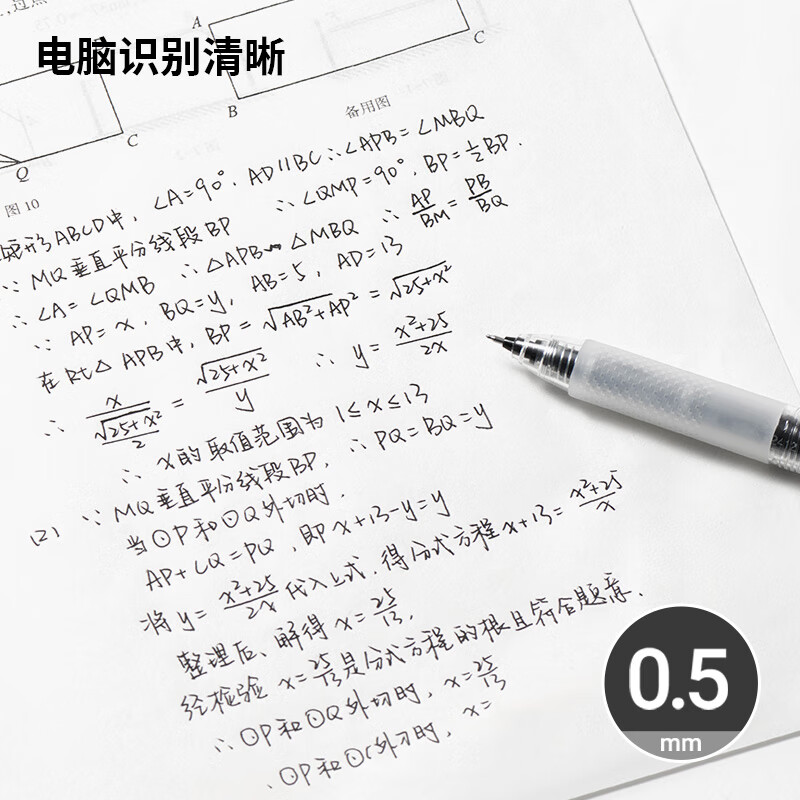 电脑识别清晰
A
C
B
C
Q
备用图
图10
矩形ABCD中，∠A=90°，AD∥BC∴∠APB=∠MBQ
∵MQ垂直平分线段BP ∴∠QMP=90°，BP=½BP.
∴∠A=∠QMB ∴△APB∽△MBQ ∴AP/BM=PB/BQ
∵AP=x，BQ=y，AB=5，AD=13
在Rt△APB中，BP=√AB²+AP²=√25+x²
∴x/(√25+x²/2)=√25+x²/y ∴y=x²+25/2x
∴x的取值范围为1≤x≤13
(2) ∵MQ垂直平分线段BP，∴PQ=BQ=y
当⊙P和⊙Q外切时，
AP+CQ=PQ，即x+13-y=y
将y=x²+25/2x代入上式，得分式方程x+13=x²+25/x
整理后、解得x=25/13，
经检验x=25/13是分式方程的根且符合题意.
∴⊙P和⊙Q外切时，x=25/13
⊙P和⊙C外刀时，x=
0.5
mm